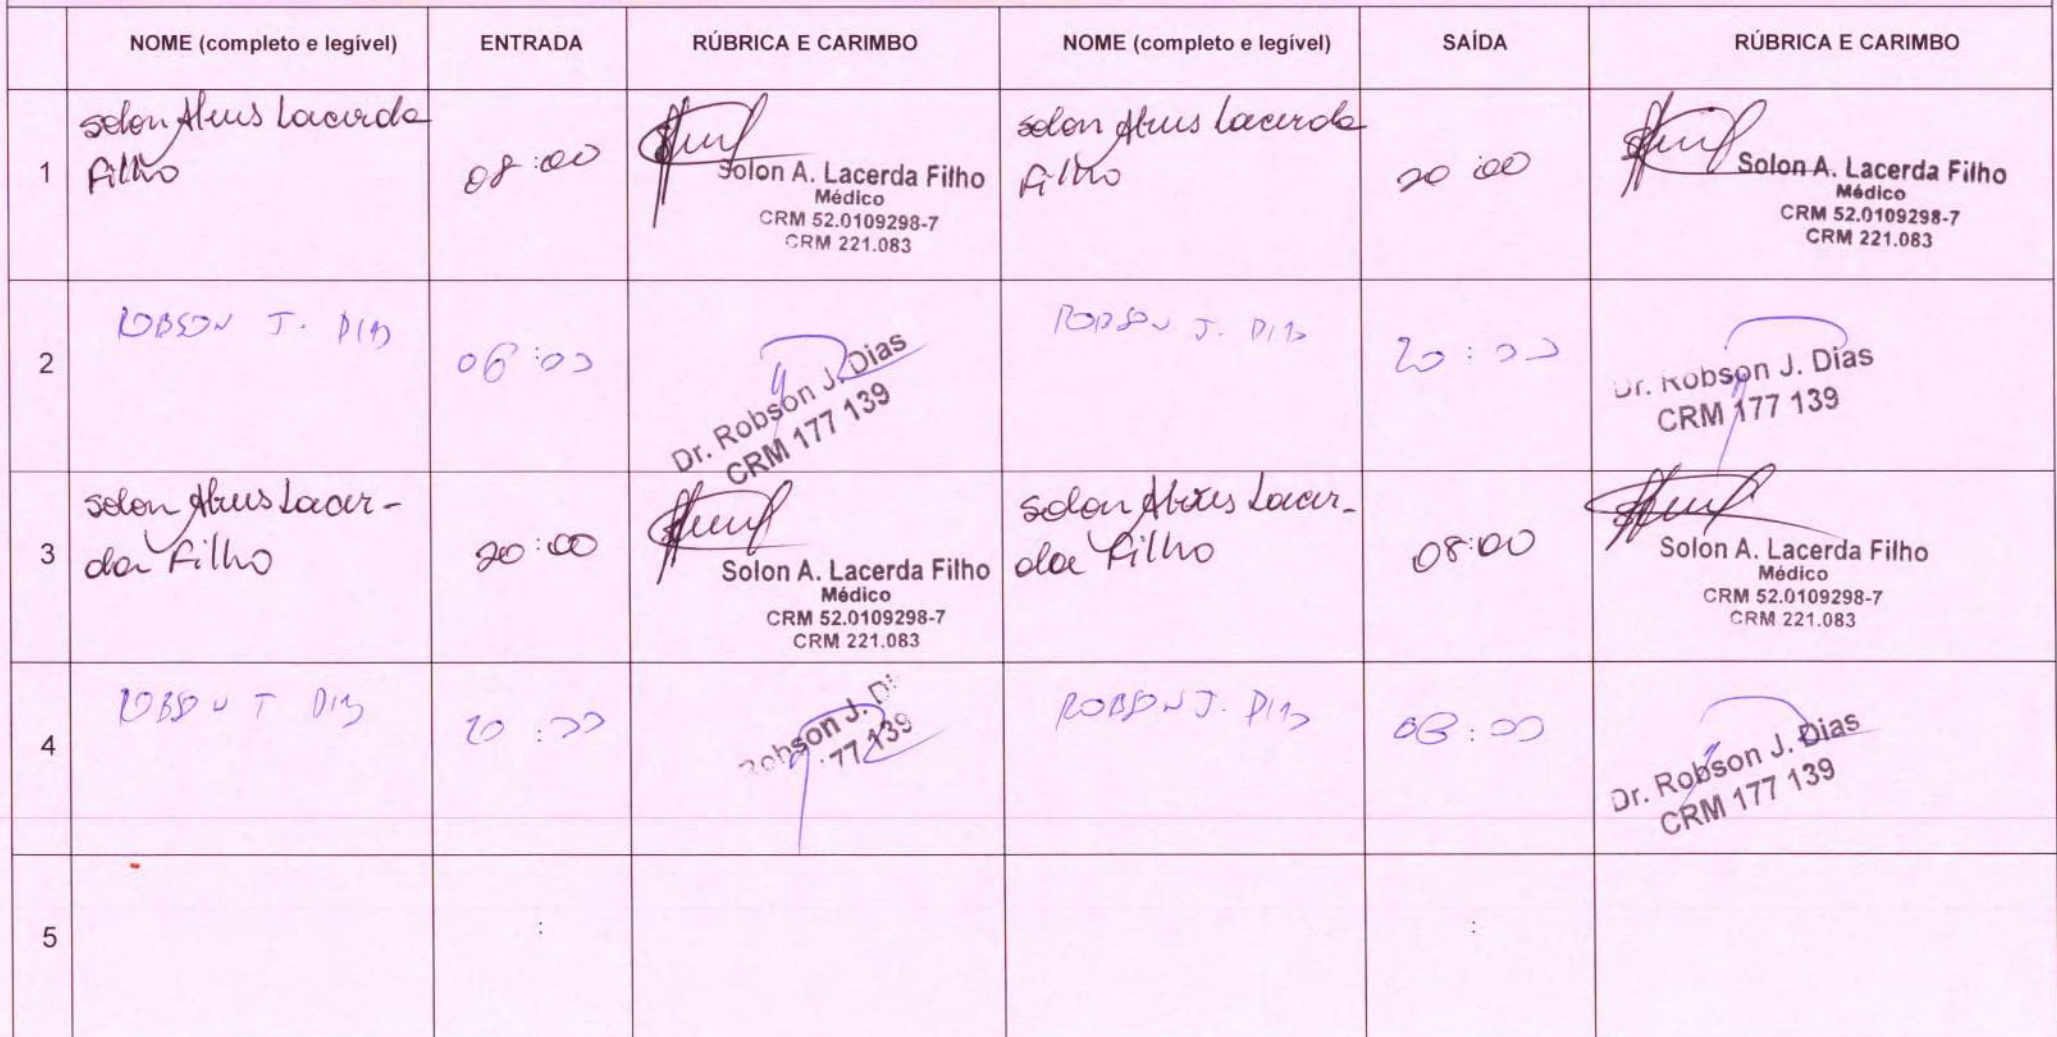 NOME (completo e legível) ENTRADA RÚBRICA E CARIMBO NOME (completo e legível) SAÍDA RÚBRICA E CARIMBO
1
Solon Alves Lacerda
Filho
08:00
Solon A. Lacerda Filho
Médico
CRM 52.0109298-7
CRM 221.083
Solon Alves Lacerda
Filho
20:00
Solon A. Lacerda Filho
Médico
CRM 52.0109298-7
CRM 221.083
2
ROBSON J. DIAS
08:00
Dr. Robson J. Dias
CRM 177 139
ROBSON J. DIAS
20:00
Dr. Robson J. Dias
CRM 177 139
3
Solon Alves Lacer-
da Filho
20:00
Solon A. Lacerda Filho
Médico
CRM 52.0109298-7
CRM 221.083
Solon Alves Lacer-
da Filho
08:00
Solon A. Lacerda Filho
Médico
CRM 52.0109298-7
CRM 221.083
4
ROBSON J DIAS
20:00
Robson J.
77 139
ROBSON J. DIAS
08:00
Dr. Robson J. Dias
CRM 177 139
5
:
: